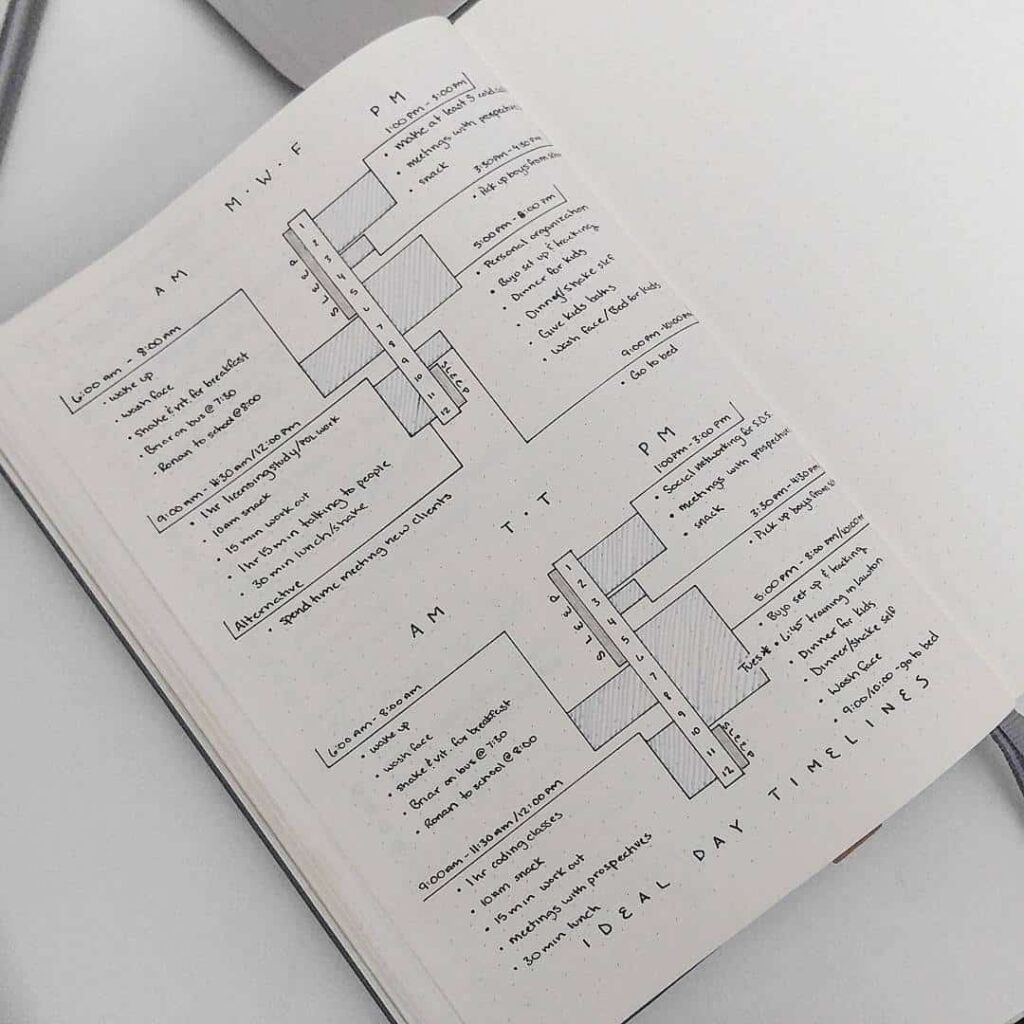 M · W · F
AM
6:00 am - 8:00 am
· wake up
· wash face
· shake & vit. for breakfast
· Briar on bus @ 7:30
· Ronan to school @ 8:00
9:00 am - 11:30 am / 12:00 PM
· 1 hr licensing study/POL work
· 10am snack
· 15 min work out
· 1 hr 15 min talking to people
· 30 min lunch/shake
Alternative
· spend time meeting new clients
1
2
3
4
5
6
7
8
9
10
11
12
SLEEP
SLEEP
PM
1:00 PM - 3:00 PM
· make at least 5 cold
· meetings with prospective
· snack
3:30 PM - 4:30 PM
· Pick up boys from
5:00 PM - 8:00 PM
· Personal organization
· Bujo set up & tracking
· Dinner for kids
· Dinner/Shake self
· Give kids baths
· Wash Face/Bed for kids
9:00 PM - 10:00 PM
· Go to bed
T · T
AM
6:00 am - 8:00 am
· wake up
· wash face
· shake & vit. for breakfast
· Briar on bus @ 7:30
· Ronan to school @ 8:00
9:00 am - 11:30 am / 12:00 PM
· 1 hr coding classes
· 10am snack
· 15 min work out
· meetings with prospectives
· 30 min lunch
1
2
3
4
5
6
7
8
9
10
11
12
SLEEP
SLEEP
PM
1:00 PM - 3:00 PM
· Social networking for S.D.S.
· meetings with prospective
· snack
3:30 AM - 4:30 PM
· Pick up boys from
5:00 PM - 8:00 PM / 10:00 PM
· Bujo set up & tracking
Tues* · 6:45 training in Lawton
· Dinner for kids
· Dinner/shake self
· Wash face
· 9:00/10:00 - go to bed
IDEAL DAY TIMELINES